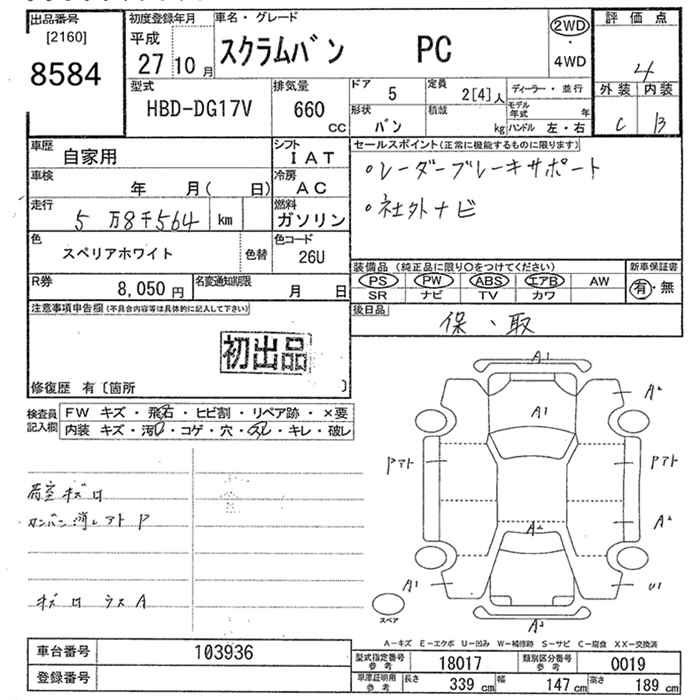 出品番号
[2160]
8584
初度登録年月
平成
27 10 月
車名・グレード
スクラムバン PC
2WD
・
4WD
評価点
4
外装 内装
C B
型式
HBD-DG17V
排気量
660
CC
ドア 5
定員 2[4]人
ディーラー・並行
形状 バン
積載 kg
モデル年式 年
ハンドル 左・右
車歴 自家用
シフト IAT
車検 年 月( 日)
冷房 AC
走行 5万8千564 km
燃料 ガソリン
色 スペリアホワイト
色替
色コード 26U
R券 8,050円
名変通知期限 月 日
セールスポイント(正常に機能するものに限ります)
・レーダーブレーキサポート
・社外ナビ
装備品 (純正品に限り〇をつけてください)
PS PW ABS エアB AW
SR ナビ TV カワ
新車保証書
有・無
後日品
保・取
注意事項申告欄(不具合内容等は具体的に記入して下さい)
初出品
修復歴 有〔箇所 〕
検査員記入欄
FW キズ・飛石・ヒビ割・リペア跡・×要
内装 キズ・汚れ・コゲ・穴・スレ・キレ・破レ
荷室キズロ
カンバン消しアトP
A1
A1
A2
Pアト
Pアト
A2
A2
A1
U1
A2
スペア
A-キズ E-エクボ U-凹み W-補修跡 S-サビ C-腐食 XX-交換済
車台番号 103936
登録番号
型式指定番号 参考 18017
類別区分番号 参考 0019
車庫証明用 参考 長さ 339 cm 幅 147 cm 高さ 189 cm